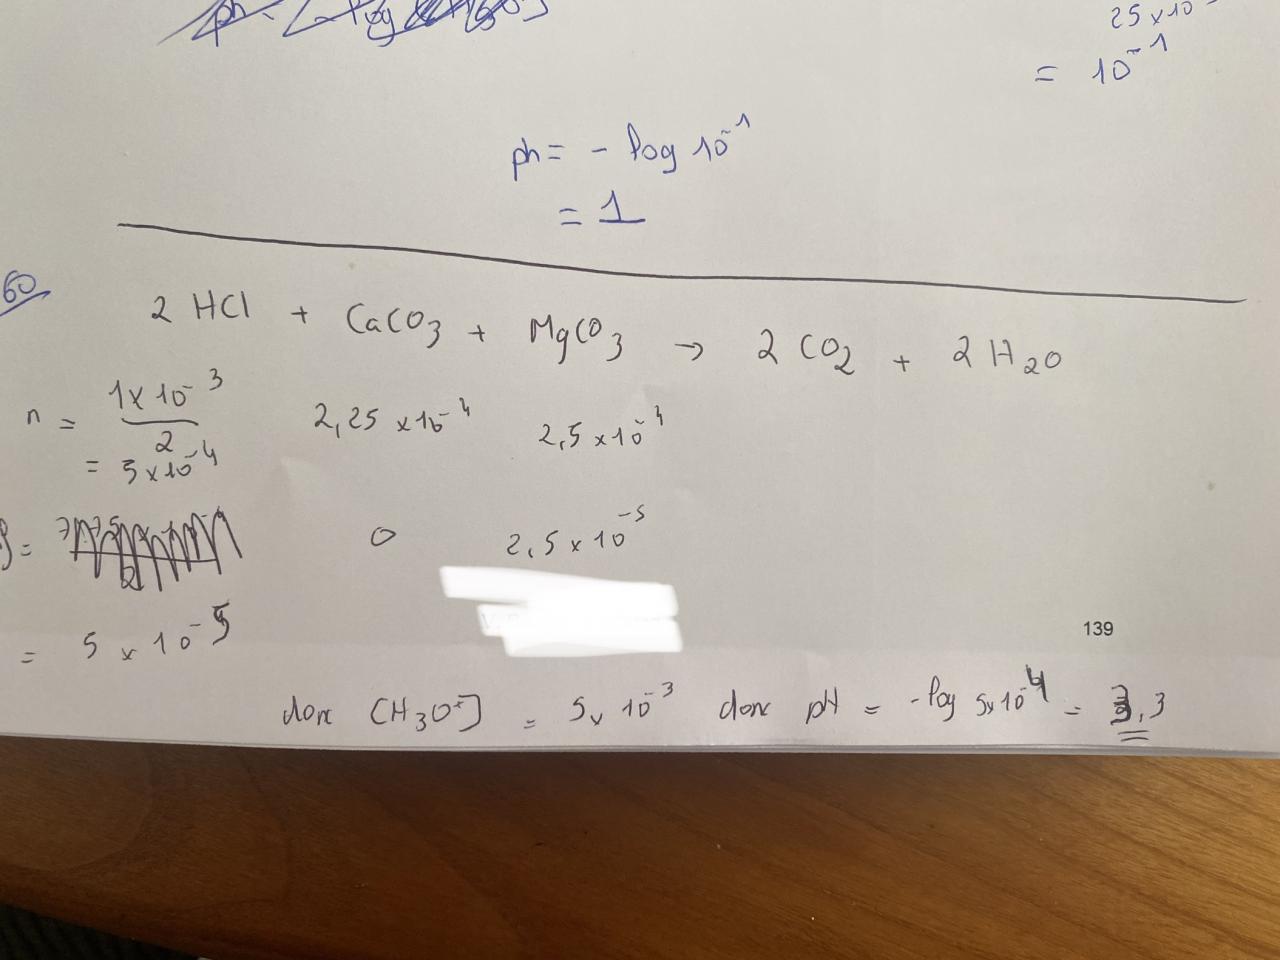 25 x 10
= 10⁻¹
ph = - log 10⁻¹
= 1
60
2 HCl + CaCO₃ + MgCO₃ → 2 CO₂ + 2 H₂O
n = 1 x 10⁻³ / 2 2,25 x 10⁻⁴ 2,5 x 10⁻⁴
= 5 x 10⁻⁴
= 0 2,5 x 10⁻⁵
= 5 x 10⁻⁵
139
donc [H₃O⁺] = 5 x 10⁻³ donc pH = -log 5x10⁻⁴ = 3,3